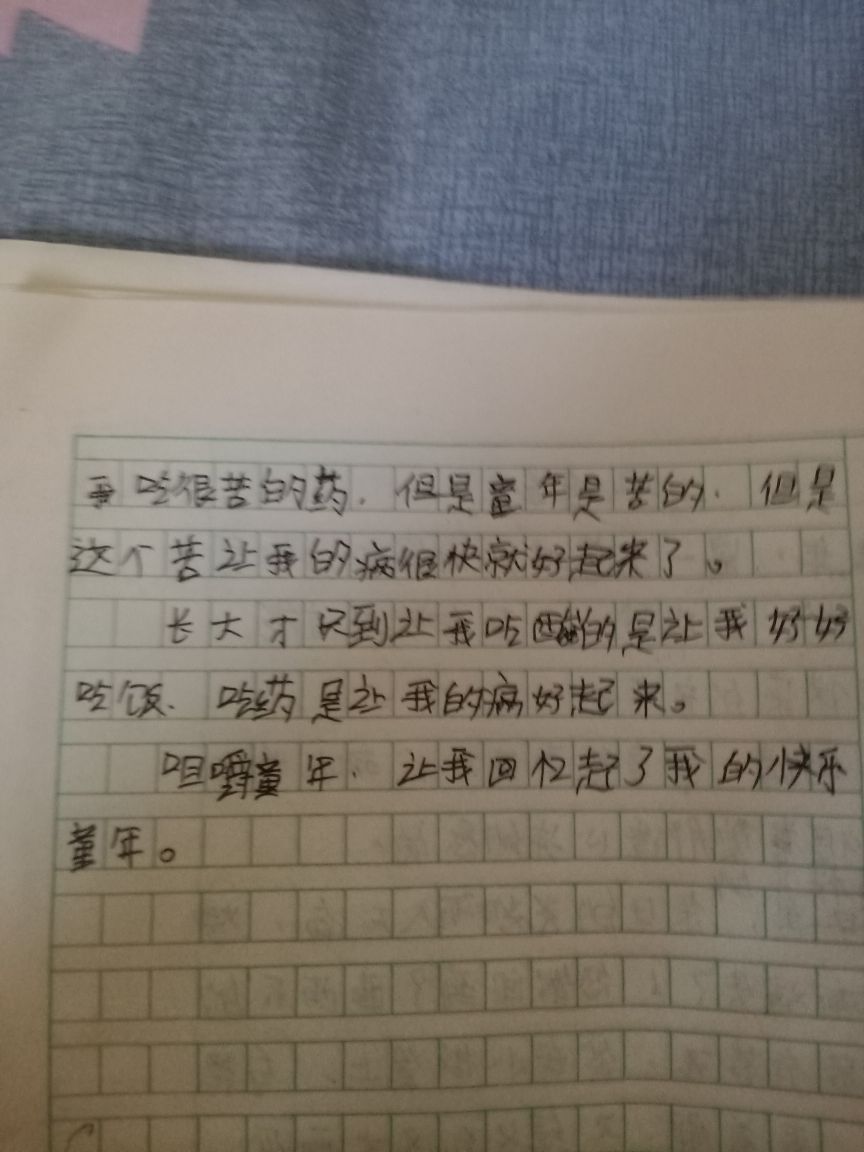 我吃很苦的药，但是童年是苦的，但是
这个苦让我的病很快就好起来了。
长大才只到让我吃酸的是让我好好
吃饭、吃药是让我的病好起来。
咀嚼童年，让我回忆起了我的快乐
童年。